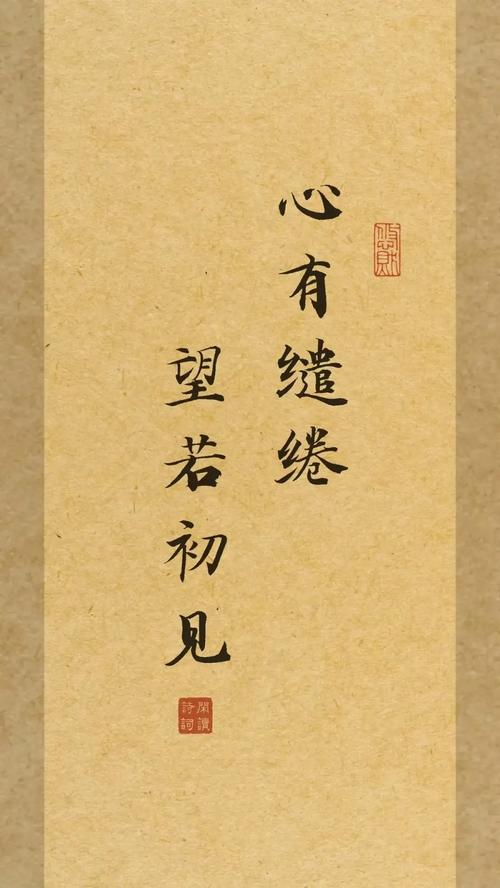 心有缱绻
望若初见
閑讀
詩詞